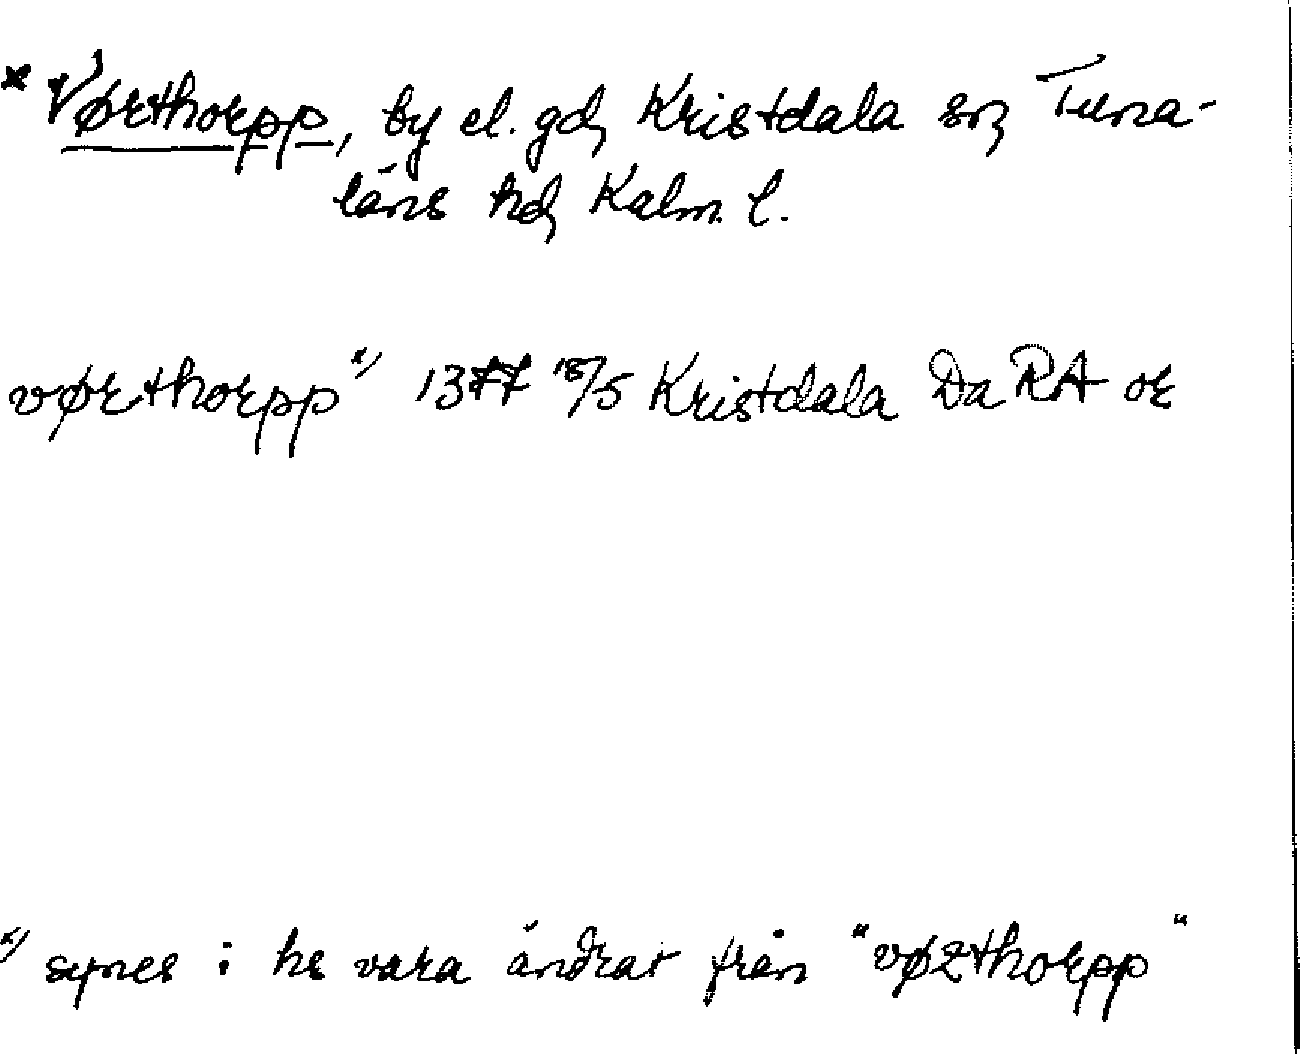 * Vørthorpp, by el. gd, Kristdala sn, Tuna-
läns hd, Kalm. l.
vørthorpp x) 1377 18/5 Kristdala Da RA or
x) synes i hs vara ändrat från "vøzthorpp"